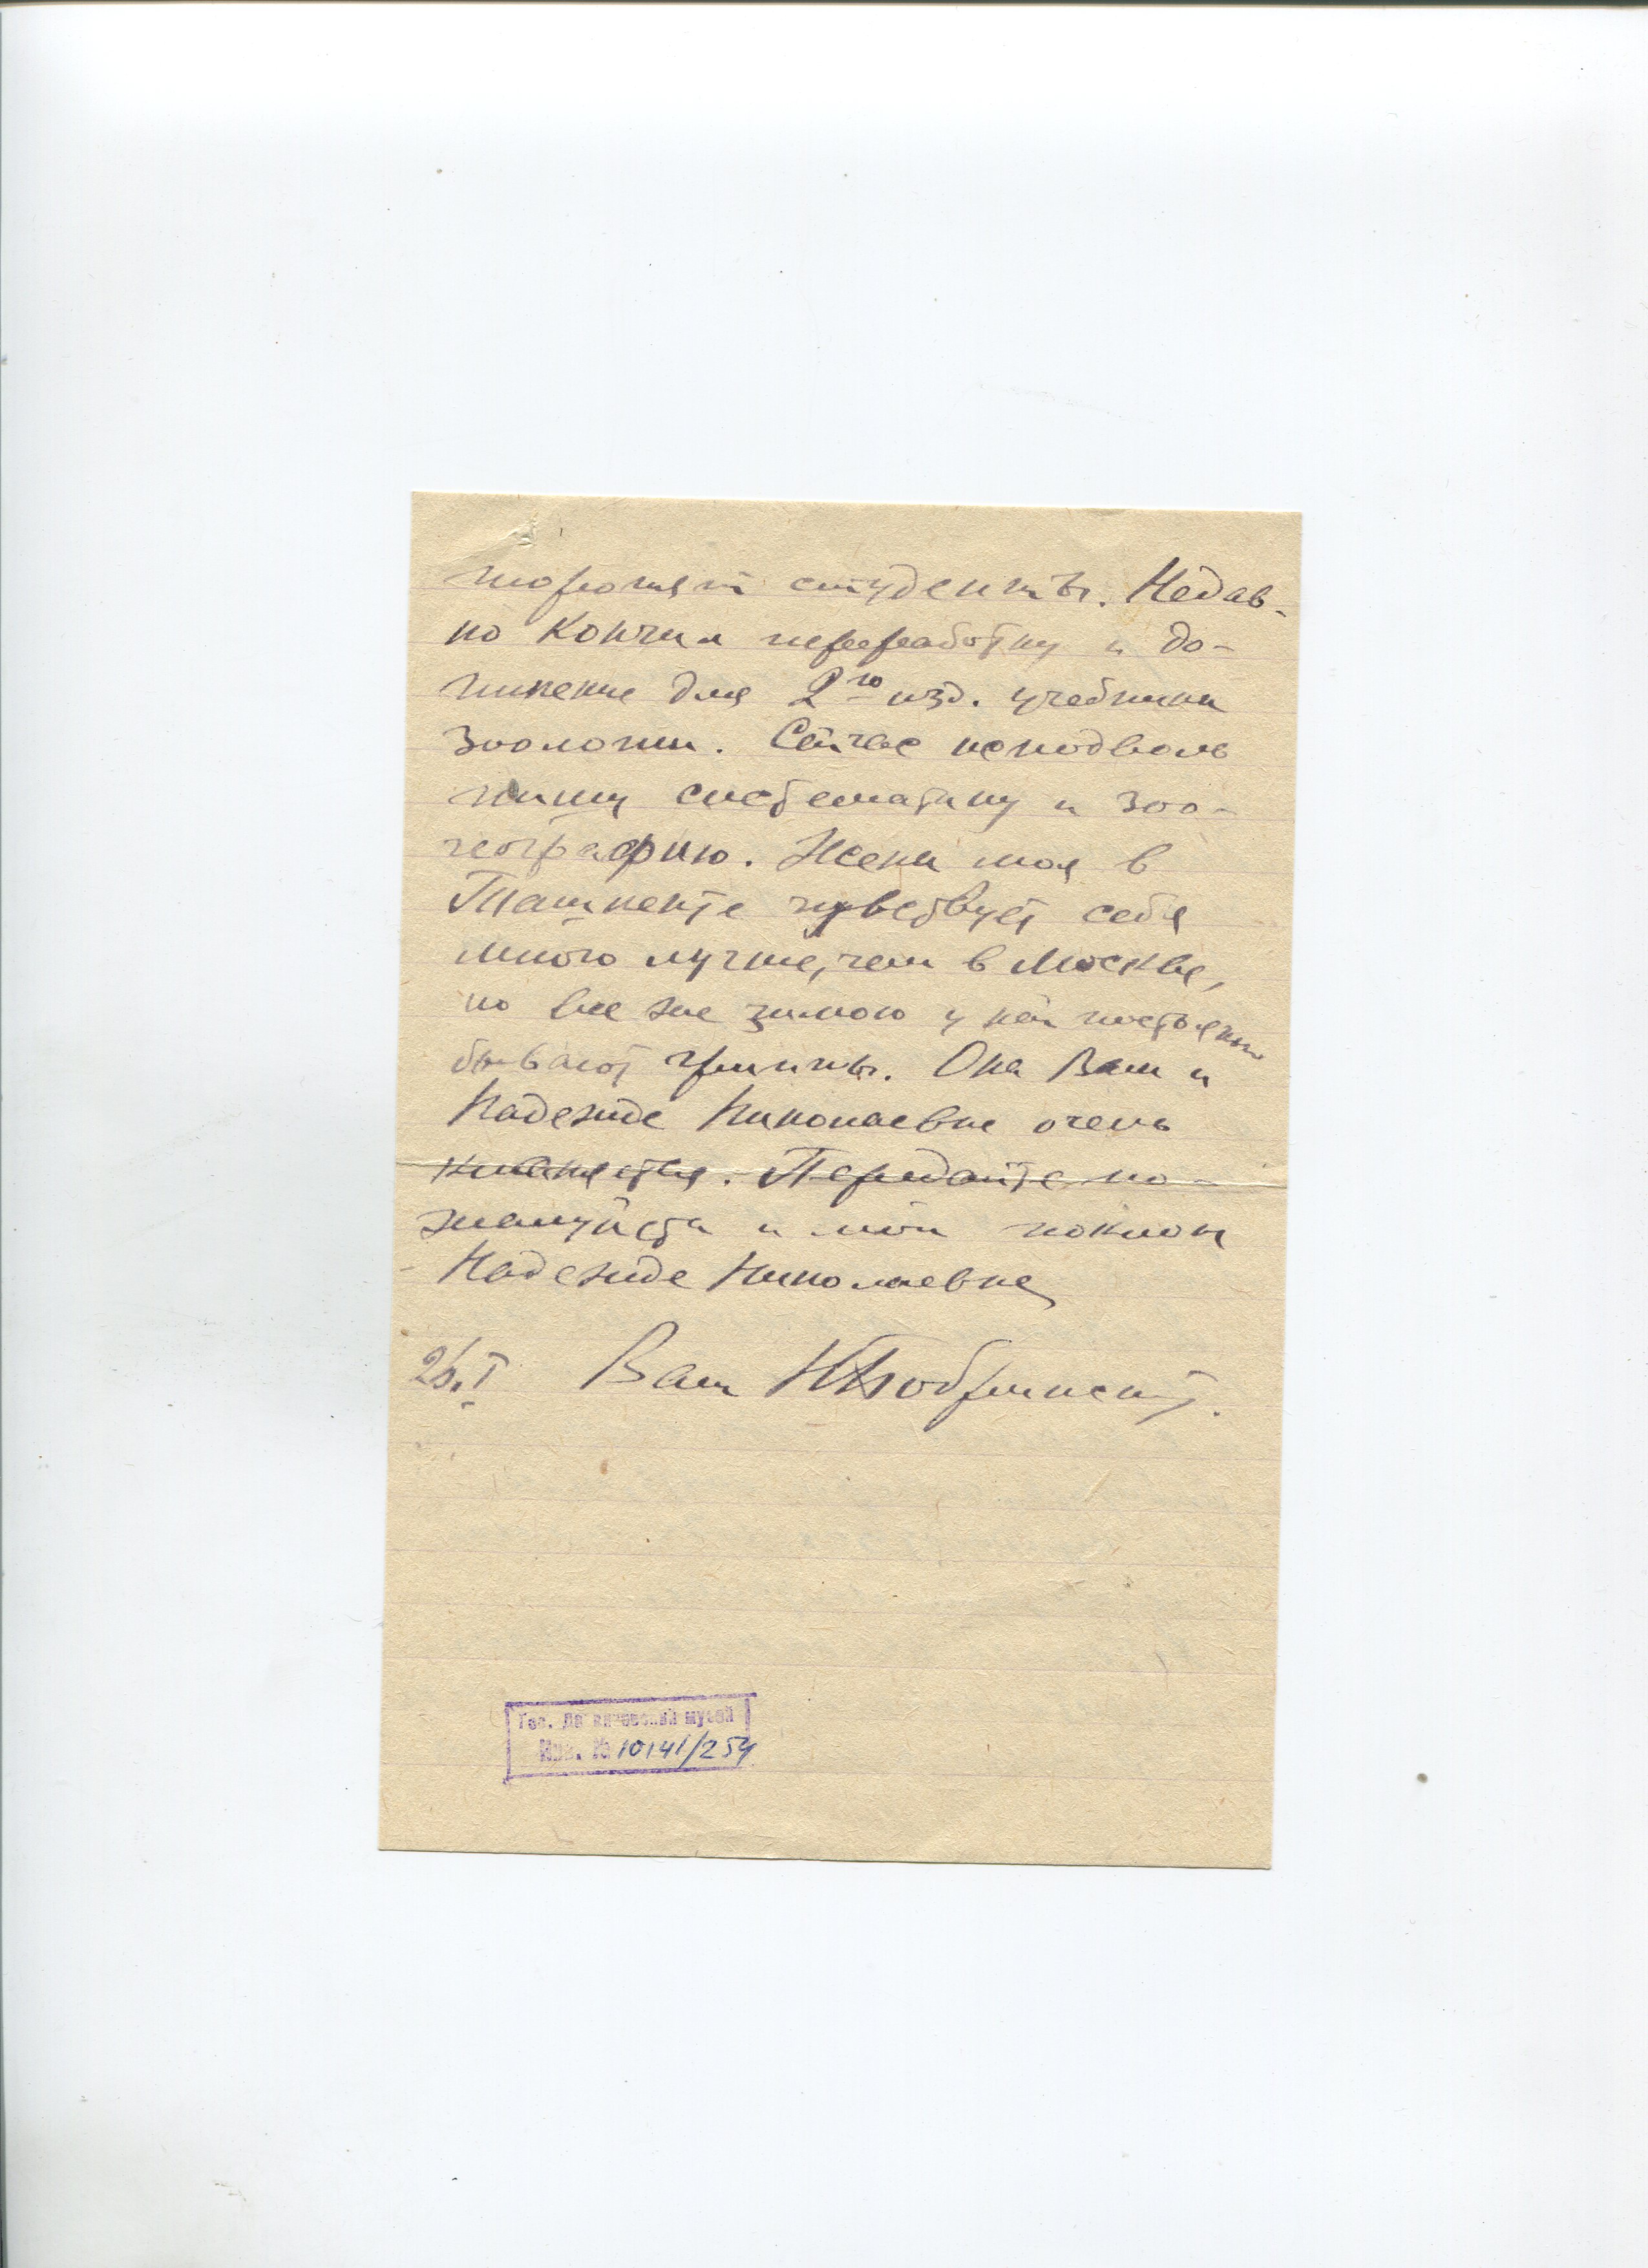 торопят студенты. Недав-
но кончил переработку и до-
полнение для 2го изд. учебника
зоологии. Сейчас исподволь
пишу систематику и зоо-
географию. Жена моя в
Ташкенте чувствует себя
много лучше, чем в Москве,
но все же зимою у ней постоянно
бывают гриппы. Она Вам и
Надежде Николаевне очень
кланяется. Передайте по-
жалуйста и мой поклон
Надежде Николаевне
26.I Ваш НБобринский.
Гос. Дарвиновский музей
Инв. № 10141/254